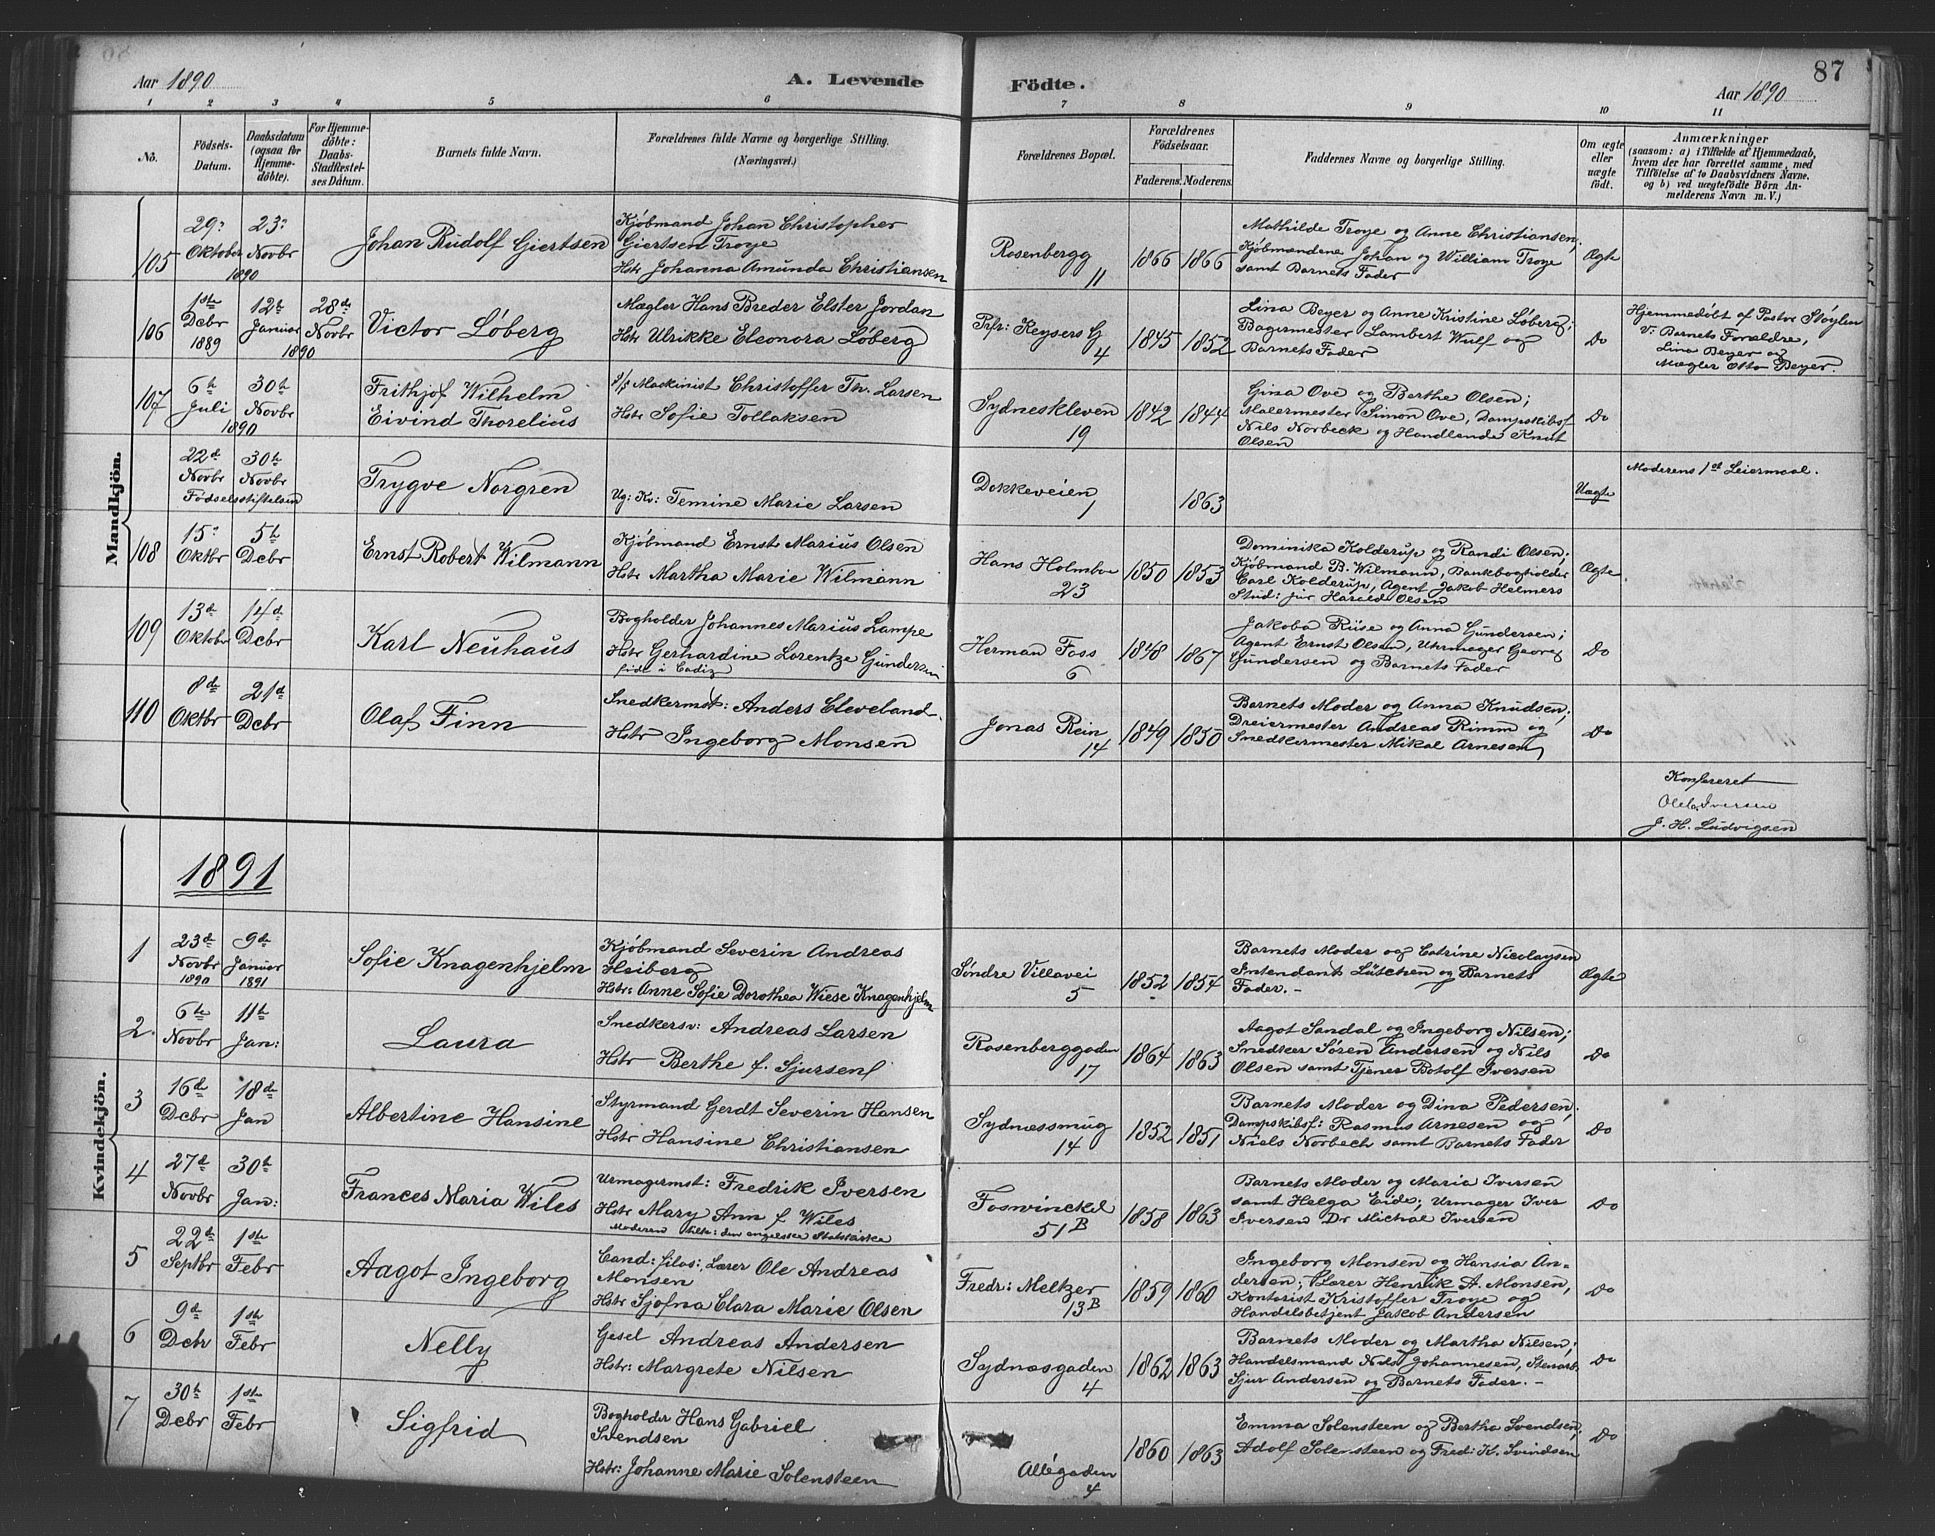 Aar 1890 A. Levende Födte. Aar 1890 87
1 2 3 4 5 6 7 8 9 10 11
No. Födsels-Datum. Daabsdatum (ogsaa for Hjemme-döbte). For Hjemme-döbte: Daabs-Stadfæstel-ses Datum. Barnets fulde Navn. Forældrenes fulde Navne og borgerlige Stilling. (Næringsvei.) Forældrenes Bopæl. Forældrenes Födselsaar. Faderens. Moderens. Faddernes Navne og borgerlige Stilling. Om ægte eller uægte født. Anmærkninger (saasom: a) i Tilfælde af Hjemmedaab, hvem der har forrettet samme, med Tilföielse af to Daabsvidners Navne, og b) ved uægtefödte Börn An-melderens Navn m. V.)
Mandkjön.
105 29: Oktober 23: Novbr 1890 Johan Rudolf Giertsen
Kjøbmand Johan Christopher
Giertsen Troye
Hstr Johanna Amunda Christiansen
Rosenbergg 11 1866 1866
Mathilde Troye og Anne Christiansen;
Kjøbmændene Johan og William Troye
samt Barnets Fader
Ægte
106 1ste Dcbr 1889 12te Januar 1890 28de Novbr Victor Løberg
Mægler Hans Breder Elster Jordan
Hstr Ulrikke Eleonora Løberg
Prfr: Keysers G 4 1845 1852
Lina Beyer og Anne Kristine Løberg;
Bagermester Lambert Wulf og
Barnets Fader
Do
Hjemmedøbt af Pastor Støylen
V: Barnets Forældre,
Lina Beyer og
Mægler Otto Beyer.
107 6te Juli 30te Novbr 1890 Frithjof Wilhelm
Eivind Thorelius
s/s Maskinist Christoffer Th. Larsen
Hstr Sofie Tollaksen
Sydneskleven 19 1842 1844
Gina Ove og Berthe Olsen;
Malermester Simon Ove, Dampskibsf
Nils Norbeck og Handlende Knut
Olsen
Do
22d Novbr 30te Novbr Fødselsstiftelsen Trygve Norgren
Ug: Kv: Temine Marie Larsen
Dokkeveien 1 1863
Uægte
Moderens 1st Leiermaal.
108 15: Oktbr 5te Dcbr Ernst Robert Wilmann
Kjøbmand Ernst Marius Olsen
Hstr Martha Marie Wilmann
Hans Holmboe 23 1850 1853
Dominika Kolderup og Randi Olsen;
Kjøbmand B. Wilmann, Bankbogholder
Carl Kolderup, Agent Jakob Helmers
Stud: jur Harald Olsen
Ægte
109 13d Oktober 14d Dcbr Karl Neuhaus
Bogholder Johannes Marius Lampe
Hstr Gerhardine Lorentze Gundersen
føde i Cadiz
Herman Foss 6 1848 1867
Jakoba Riise og Anna Gundersen;
Agent Ernst Olsen, Uhrmager Georg
Gundersen og Barnets Fader
Do
110 8d Oktbr 21d Dcbr Olaf Finn
Snedkermst: Anders Cleveland
Hstr Ingeborg Monsen
Jonas Rein 14 1849 1850
Barnets Moder og Anna Knudsen;
Dreiermester Andreas Rimm og
Snedkermester Mikal Arnesen
Do
Konfereret
Ole Iversen
J. H. Ludvigsen
1891
Kvindekjön.
1 23d Novbr 1890 9d Januar 1891 Sofie Knagenhjelm
Kjøbmand Severin Andreas
Heiberg
Hstr: Anne Sofie Dorothea Wiese Knagenhjelm
Søndre Villavei 5 1852 1854
Barnets Moder og Catrine Nicolaysen
Intendant Lütchen og Barnets
Fader.-
Ægte
2. 6te Novbr 11te Jan: Laura
Snedkersv: Andreas Larsen
Hstr Berthe f. Sjursen
Rosenberggaden 17 1864 1863
Aagot Sandal og Ingeborg Nilsen;
Snedker Søren Andersen og Nils
Olsen samt Tjener Botolf Iversen
Do
3 16d Dcbr 18d Jan Albertine Hansine
Styrmand Gerdt Severin Hansen
Hstr Hansine Christiansen
Sydnæssmug 14 1852 1851
Barnets Moder og Dina Pedersen;
Dampskibsf: Rasmus Arnesen og
Niels Norbech samt Barnets Fader
Do
4 27d Novbr 30te Jan: Frances Maria Wiles
Urmagermst: Fredrik Iversen
Hstr Mary Ann f Wiles
Moderen tilh: den engelske Statskirke
Foswinckel 51B 1858 1863
Barnets Moder og Maria Iversen
samt Helga Eide; Urmager Iver
Iversen Dr Michal Iversen
Do
5 22d Septbr 1ste Febr Aagot Ingeborg
Cand: filos:, Lærer Ole Andreas
Monsen
Hstr Sjofna Clara Marie Olsen
Fredr: Meltzer 13B 1859 1860
Ingeborg Monsen og Hansia An-
dersen; Lærer Henrik A. Monsen,
Kontorist Kristoffer Troye og
Handelsbetjent Jakob Andersen
Do
6 9d Dcbr 1ste Febr Nelly
Gesel Andreas Andersen
Hstr: Margrete Nilsen
Sydnæsgaden 4 1862 1863
Barnets Moder og Martha Nilsen;
Handelsmand Nils Johannesen, Stenarb
Sjur Andersen og Barnets Fader.-
Do
7 30te Dcbr 1ste Febr Sigfrid
Bogholder Hans Gabriel
Svendsen
Hstr: Johanne Marie Solensteen
Allégaden 4 1860 1863
Emma Solensteen og Bertha Svendsen,
Adolf Solensteen og Fred: K. Svindsen
Do